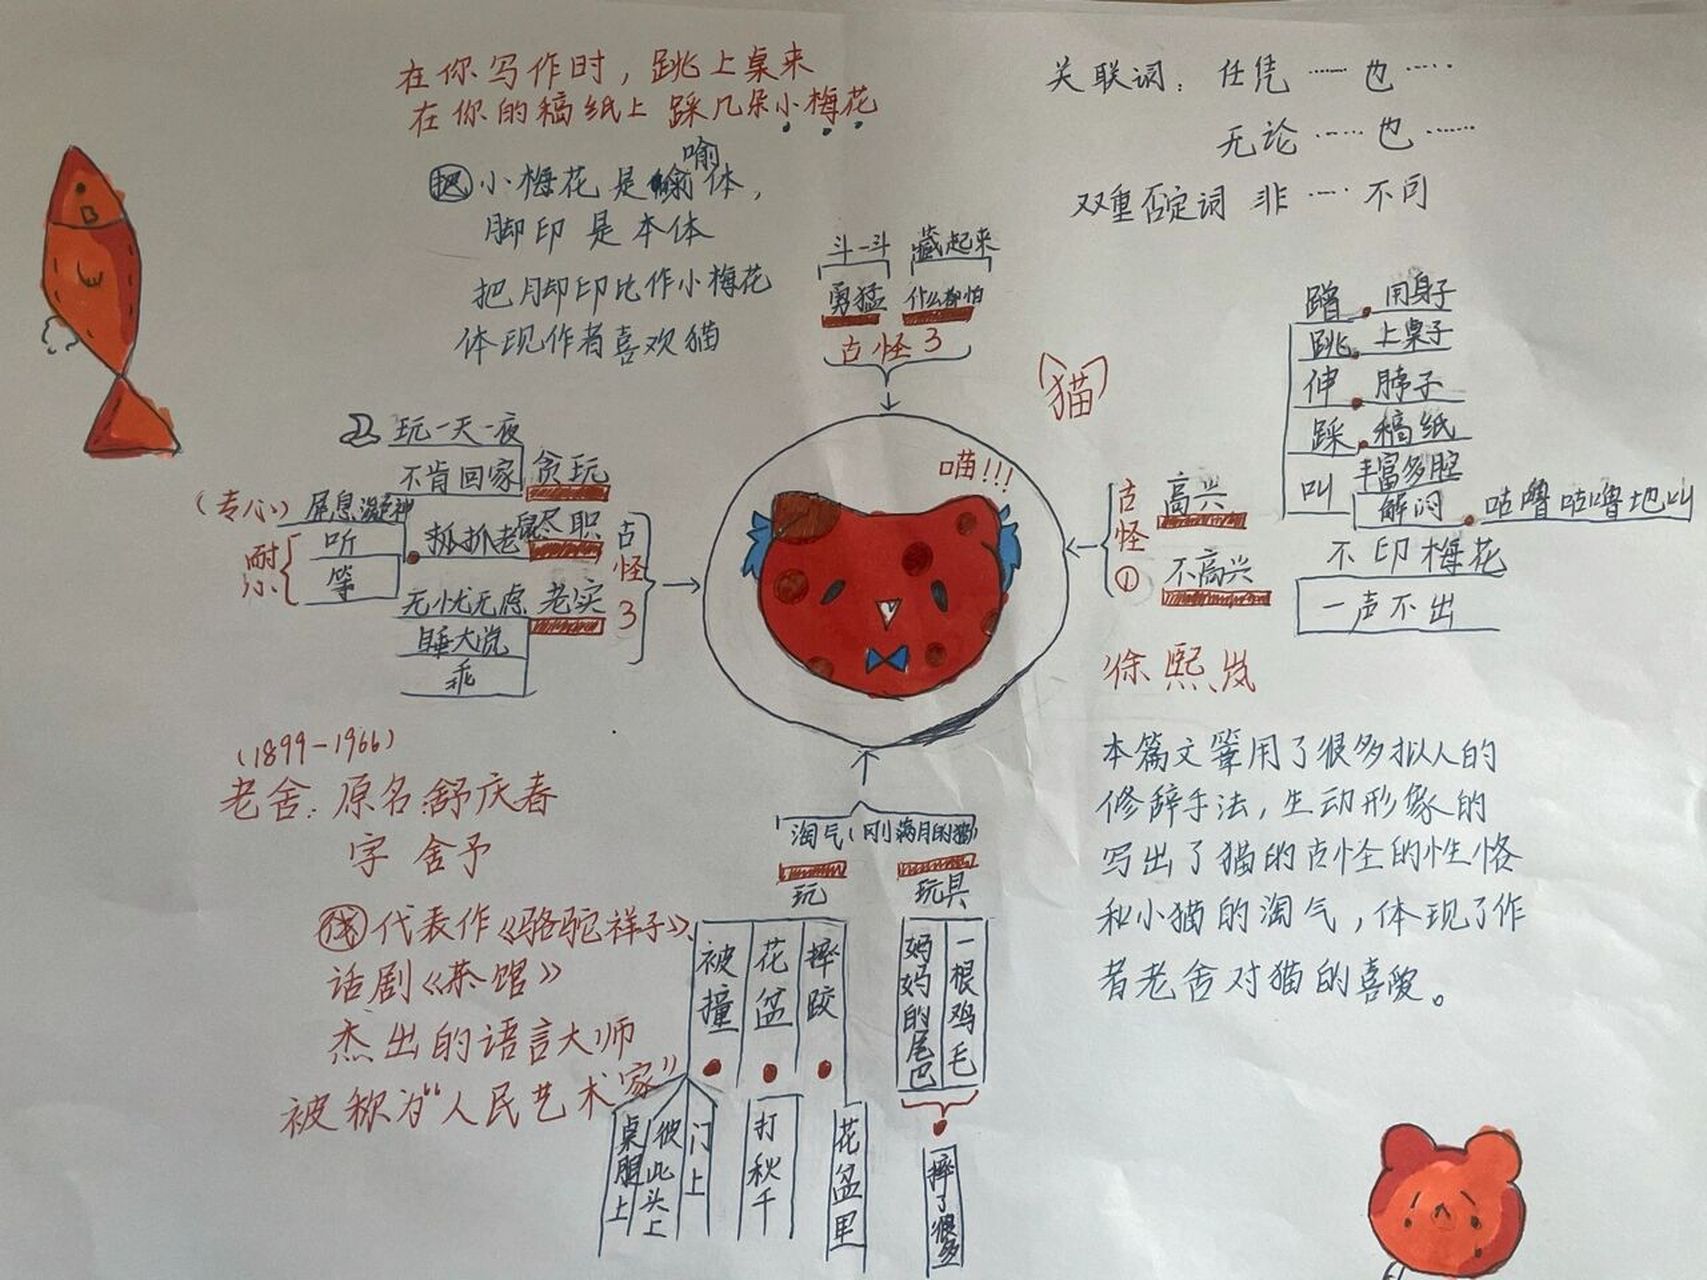 在你写作时，跳上桌来
在你的稿纸上踩几朵小梅花
小梅花是喻体，
脚印是本体
把脚印比作小梅花
体现作者喜欢猫
关联词：任凭……也……
无论……也……
双重否定词 非……不可
斗一斗 藏起来
勇猛 什么都怕
古怪3
猫
喵!!!
蹭 用身子
跳 上桌子
伸 脖子
踩 稿纸
叫 丰富多腔
解闷 咕噜咕噜地叫
古怪① 高兴
不高兴
不印梅花
一声不出
玩一天一夜
不肯回家 贪玩
(专心) 屏息凝神
抓抓老鼠 尽职
耐心
听
等
无忧无虑 老实
睡大觉
乖
古怪3
徐熙岚
(1899-1966)
老舍：原名：舒庆春
字 舍予
代表作《骆驼祥子》、
话剧《茶馆》
杰出的语言大师
被称为“人民艺术家”
淘气(刚满月的猫)
玩 玩具
被撞
花盆
摔跤
妈妈的尾巴
一根鸡毛
桌腿上
彼此头上
门上
打秋千
花盆里
摔了很多
本篇文章用了很多拟人的
修辞手法，生动形象的
写出了猫的古怪的性格
和小猫的淘气，体现了作
者老舍对猫的喜爱。